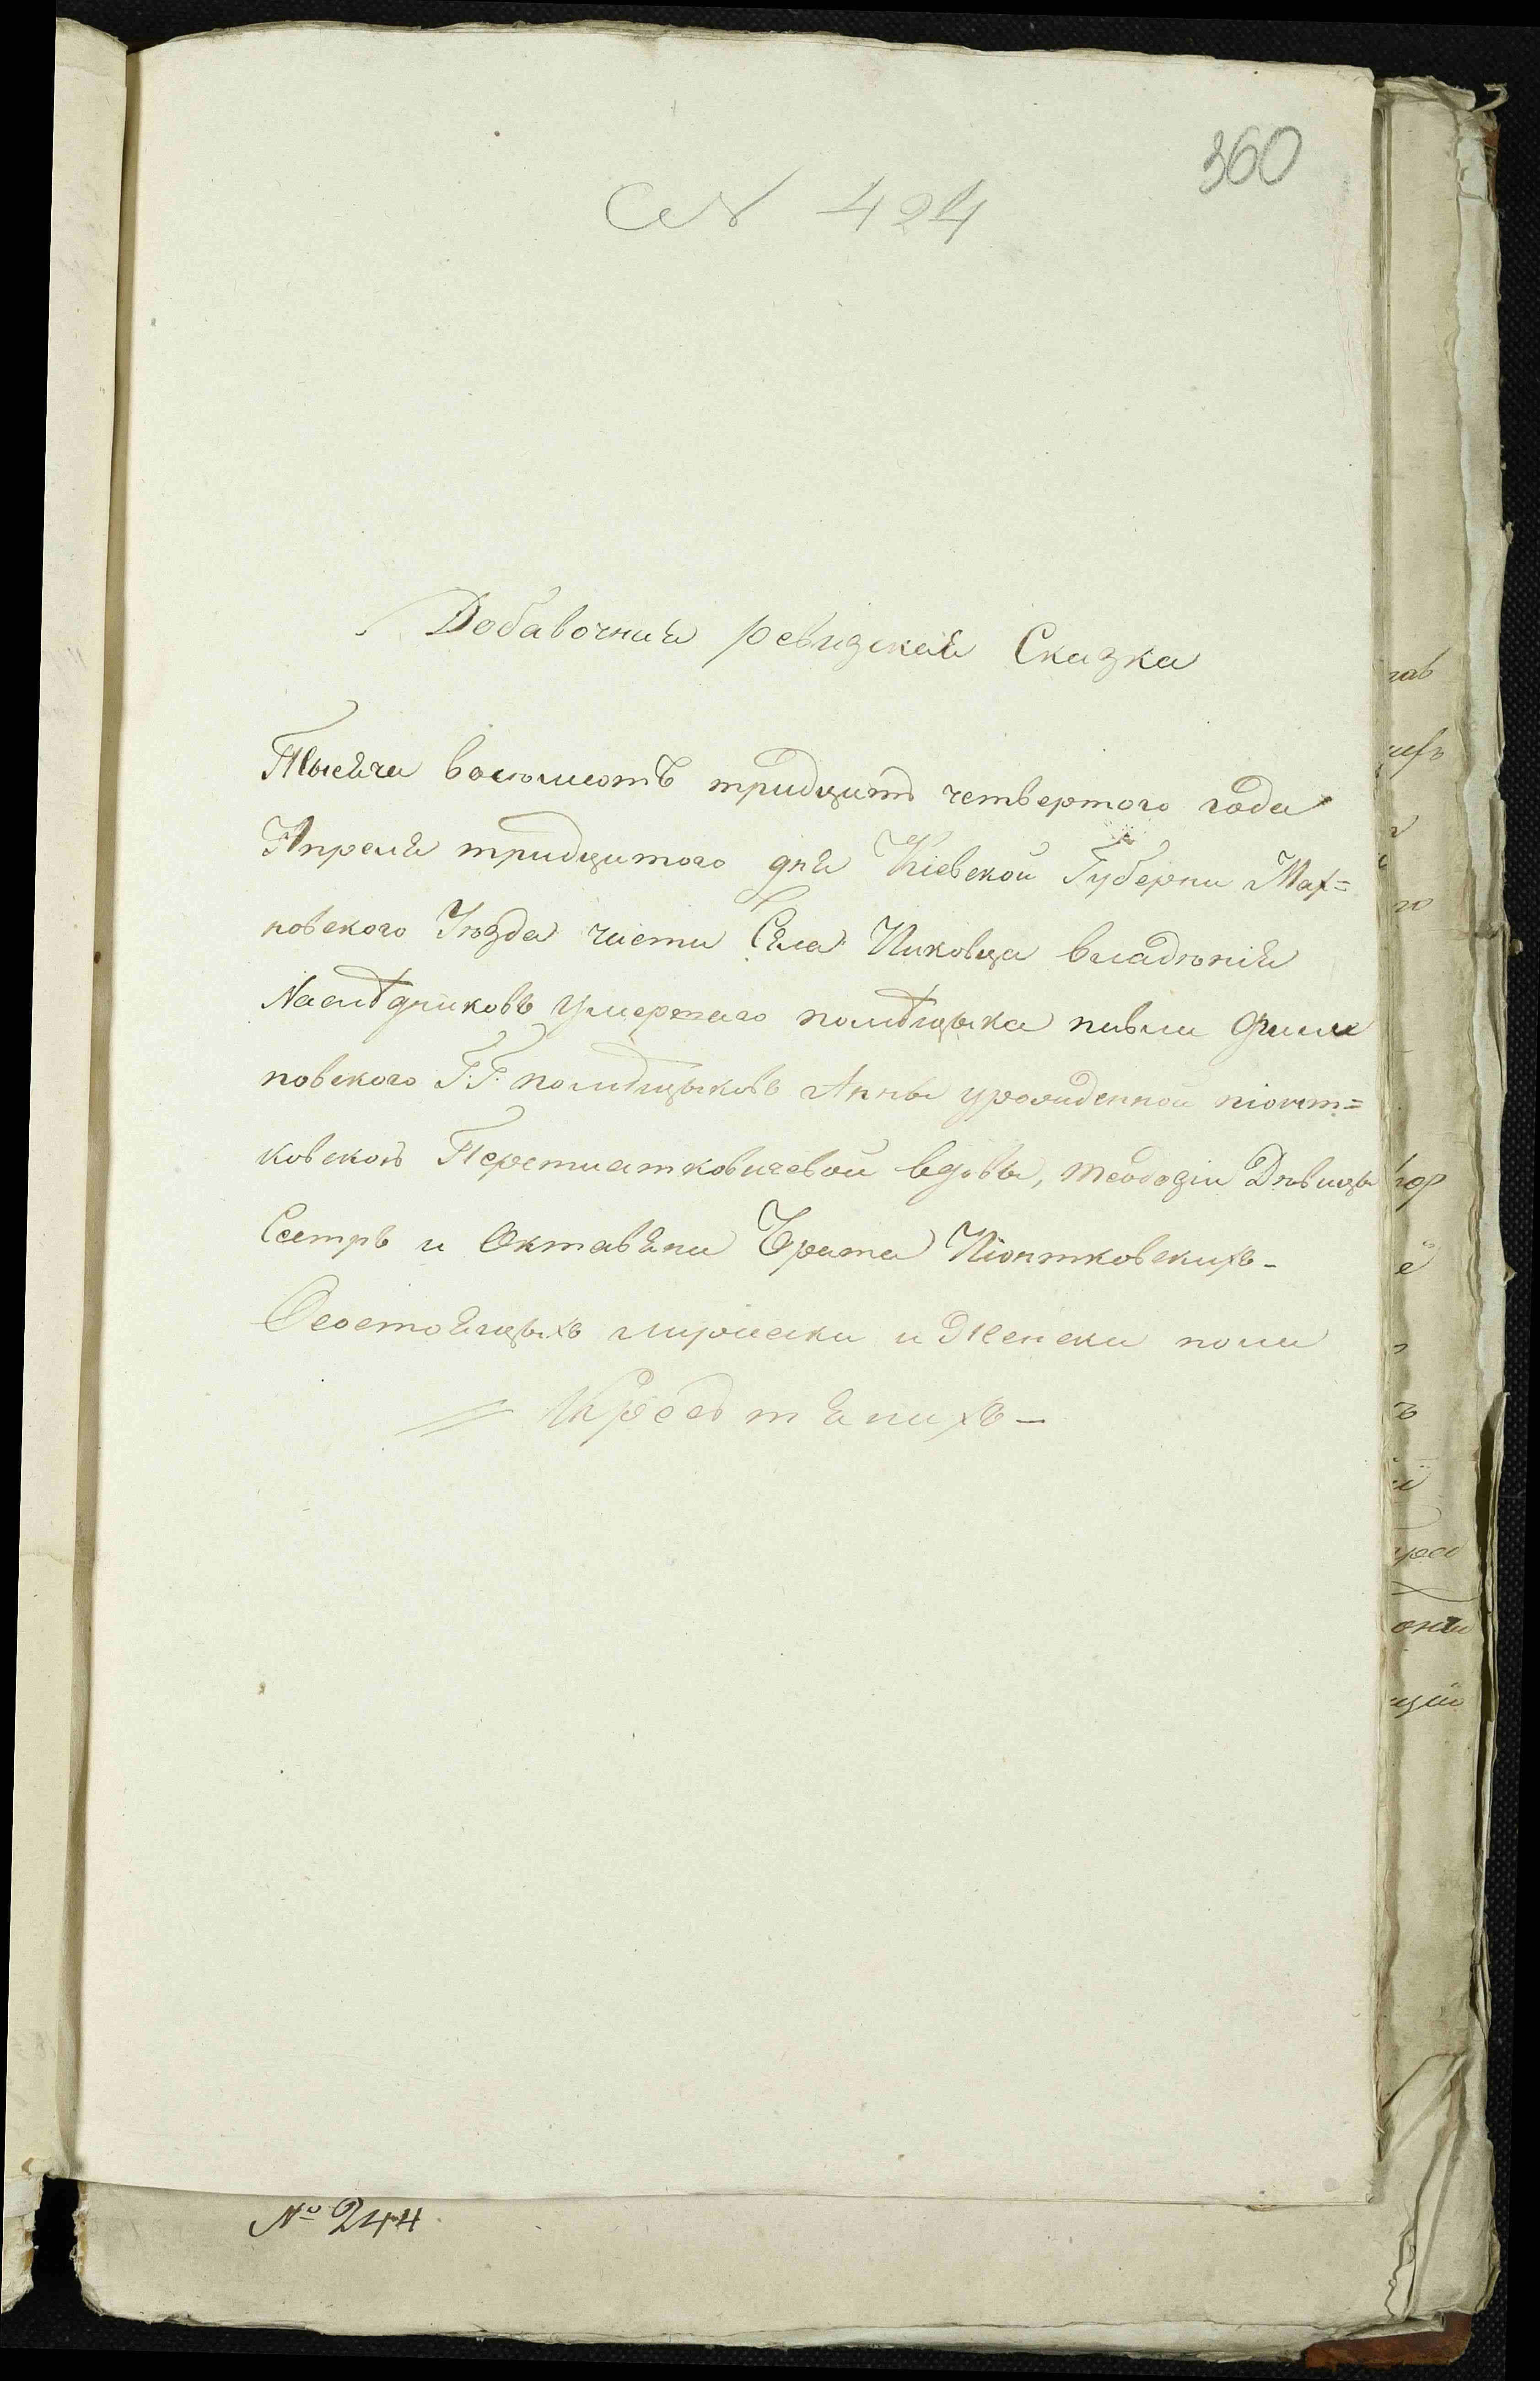 360
№ 424
Добавочная ревизская Сказка
Тысяча восемсотъ тридцать четвертого года
Апреля тридцатого дня Кіевской Губерни Мах=
новского Уѣзда части Села Пиковца владѣнія
Наслѣдниковъ умершаго помѣщыка павла Филип
повского Г:Г: помѣщыковъ Анны урожденной піонт=
ковской Перетиатковичевой вдовы, теодозіи Дѣвицы
Сестръ и Октавяна Брата Піонтковскихъ-
О состоящыхъ мужеска и женска пола
Крестянахъ-
№ 244